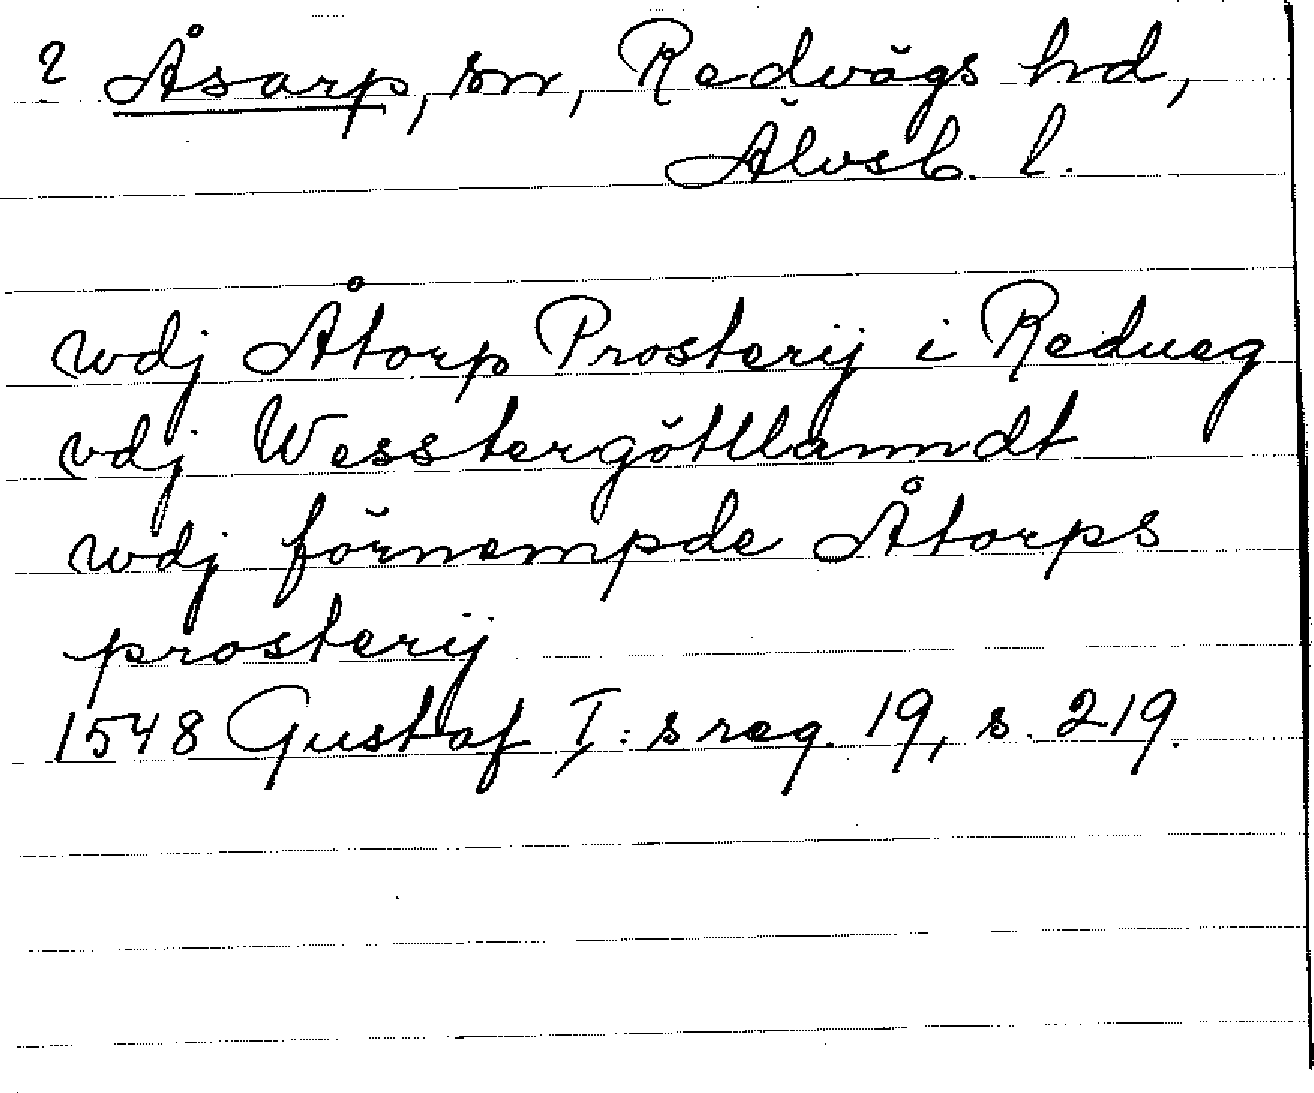 ? Åsarp, sn, Redvägs hd,
Älvsb. l.
wdj Åtorp Prosterij i Redueg
vdj Wesstergötllanndt
wdj förnempde Åtorps
prosterij
1548 Gustaf I:s reg. 19, s. 219.